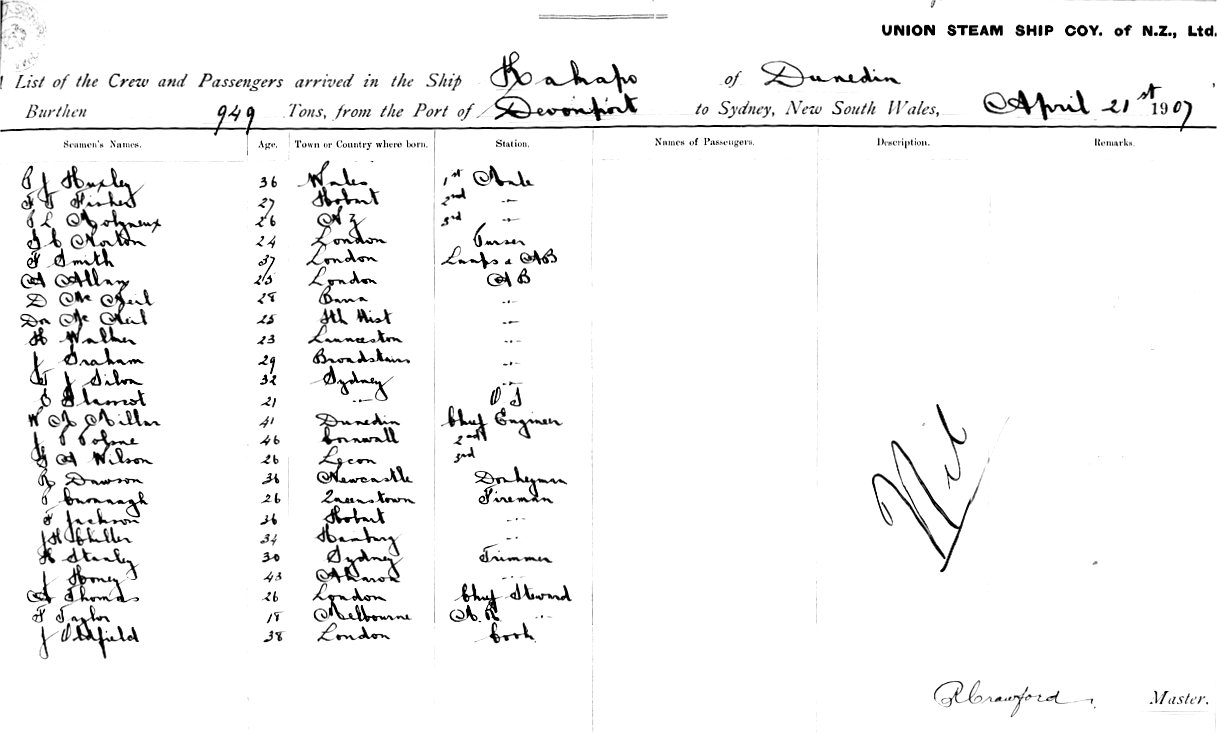 UNION STEAM SHIP COY. of N.Z., Ltd.
List of the Crew and Passengers arrived in the Ship Kahapo of Dunedin
Burthen 949 Tons, from the Port of Devonport to Sydney, New South Wales, April 21st 1907
Seamen's Names. Age. Town or Country where born. Station. Names of Passengers. Description. Remarks.
J Huxley 36 Wales 1st Mate
Fisher 27 Hobart 2nd "
L Molyneux 26 NZ 3rd "
C Norton 24 London Purser
F Smith 37 London Lamps & AB
A Allan 23 London AB
D McNeil 28 "
Dn McNeil 25 Sth Uist "
H Walker 23 Launceston "
J Graham 29 Broadstairs "
J 32 Sydney "
21 " OS
W Millar 41 Dunedin Chief Engineer
J 46 Cornwall 2nd
A Wilson 26 3rd
R Dawson 36 Newcastle Donkeyman
Cavanagh 26 Queenstown Fireman
F Jackson 36 Hobart "
JH 34 Hamburg "
H Stanley 30 Sydney Trimmer
J Honey 43 Akaroa "
A Thomas 26 London Chief Steward
F Taylor 18 Melbourne "
J Oldfield 38 London Cook
Nil
R Crawford Master.